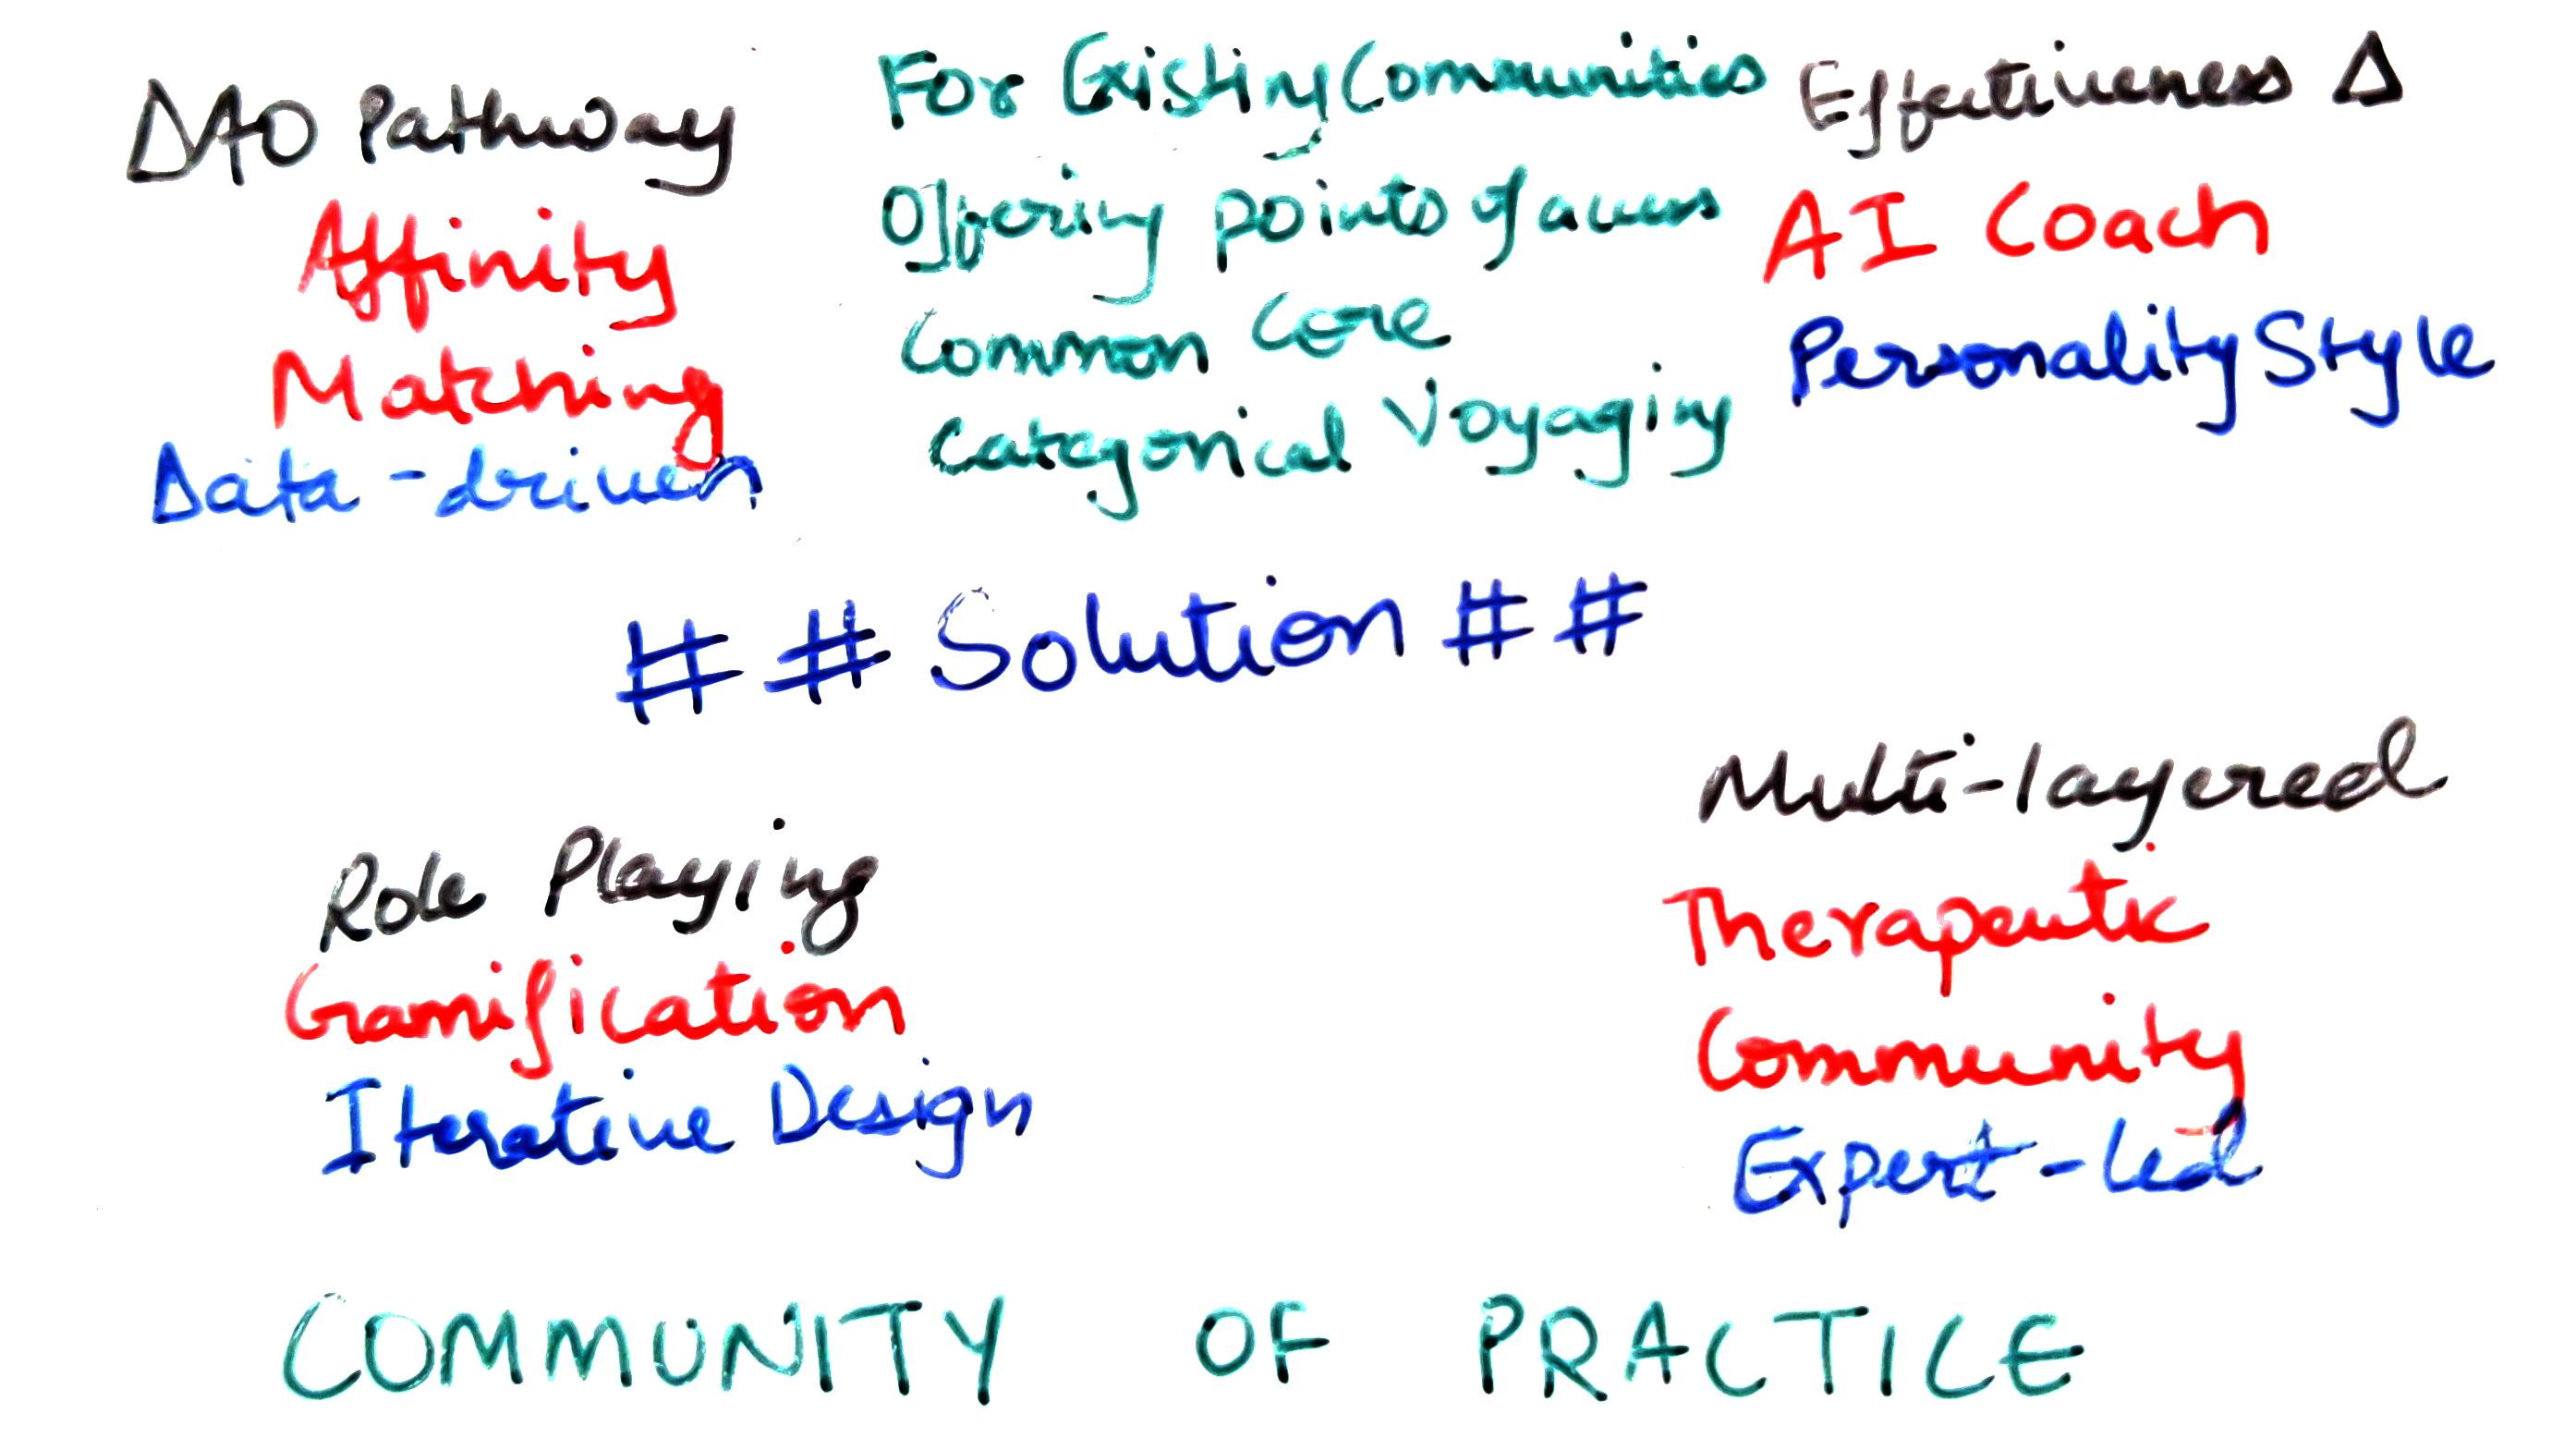 DAO Pathway
Affinity
Matching
Data-driven
For Existing Communities
Offering points of access
Common Core
Categorical Voyaging
Effectiveness Δ
AI Coach
Personality Style
# # Solution # #
Role Playing
Gamification
Iterative Design
Multi-layered
Therapeutic
Community
Expert-led
COMMUNITY OF PRACTICE